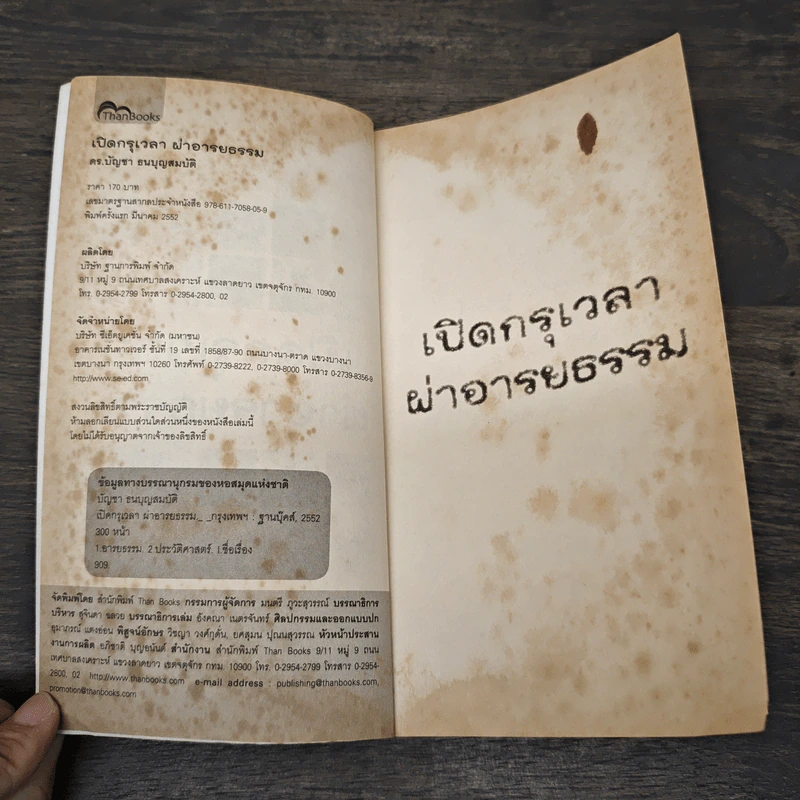 ThanBooks
เปิดกรุเวลา ผ่าอารยธรรม
ดร.บัญชา ธนบุญสมบัติ
ราคา 170 บาท
เลขมาตรฐานสากลประจำหนังสือ 978-611-7058-05-9
พิมพ์ครั้งแรก มีนาคม 2552
ผลิตโดย
บริษัท ฐานการพิมพ์ จำกัด
9/11 หมู่ 9 ถนนเทศบาลสงเคราะห์ แขวงลาดยาว เขตจตุจักร กทม. 10900
โทร. 0-2954-2799 โทรสาร 0-2954-2800, 02
จัดจำหน่ายโดย
บริษัท ซีเอ็ดยูเคชั่น จำกัด (มหาชน)
อาคารเนชั่นทาวเวอร์ ชั้นที่ 19 เลขที่ 1858/87-90 ถนนบางนา-ตราด แขวงบางนา
เขตบางนา กรุงเทพฯ 10260 โทรศัพท์ 0-2739-8222, 0-2739-8000 โทรสาร 0-2739-8356-9
http://www.se-ed.com
สงวนลิขสิทธิ์ตามพระราชบัญญัติ
ห้ามลอกเลียนแบบส่วนใดส่วนหนึ่งของหนังสือเล่มนี้
โดยไม่ได้รับอนุญาตจากเจ้าของลิขสิทธิ์
ข้อมูลทางบรรณานุกรมของหอสมุดแห่งชาติ
บัญชา ธนบุญสมบัติ
เปิดกรุเวลา ผ่าอารยธรรม._ _กรุงเทพฯ : ฐานบุ๊คส์, 2552
300 หน้า
1.อารยธรรม. 2.ประวัติศาสตร์. I.ชื่อเรื่อง
909.
จัดพิมพ์โดย สำนักพิมพ์ Than Books กรรมการผู้จัดการ มนตรี ภูวะสุวรรณ์ บรรณาธิการ
บริหาร สุจินดา ฉลวย บรรณาธิการเล่ม อังคณา เนตรจันทร์ ศิลปกรรมและออกแบบปก
ยุมาภรณ์ แตงย่อน พิสูจน์อักษร วิชญา วงศ์กูดั่น, ยศสุมน ปุณนสุวรรณ หัวหน้าประสาน
งานการผลิต อภิชาติ บุญอนันต์ สำนักงาน สำนักพิมพ์ Than Books 9/11 หมู่ 9 ถนน
เทศบาลสงเคราะห์ แขวงลาดยาว เขตจตุจักร กทม. 10900 โทร. 0-2954-2799 โทรสาร 0-2954-
2800, 02 http://www.thanbooks.com e-mail address : publishing@thanbooks.com,
promotion@thanbooks.com
เปิดกรุเวลา
ผ่าอารยธรรม